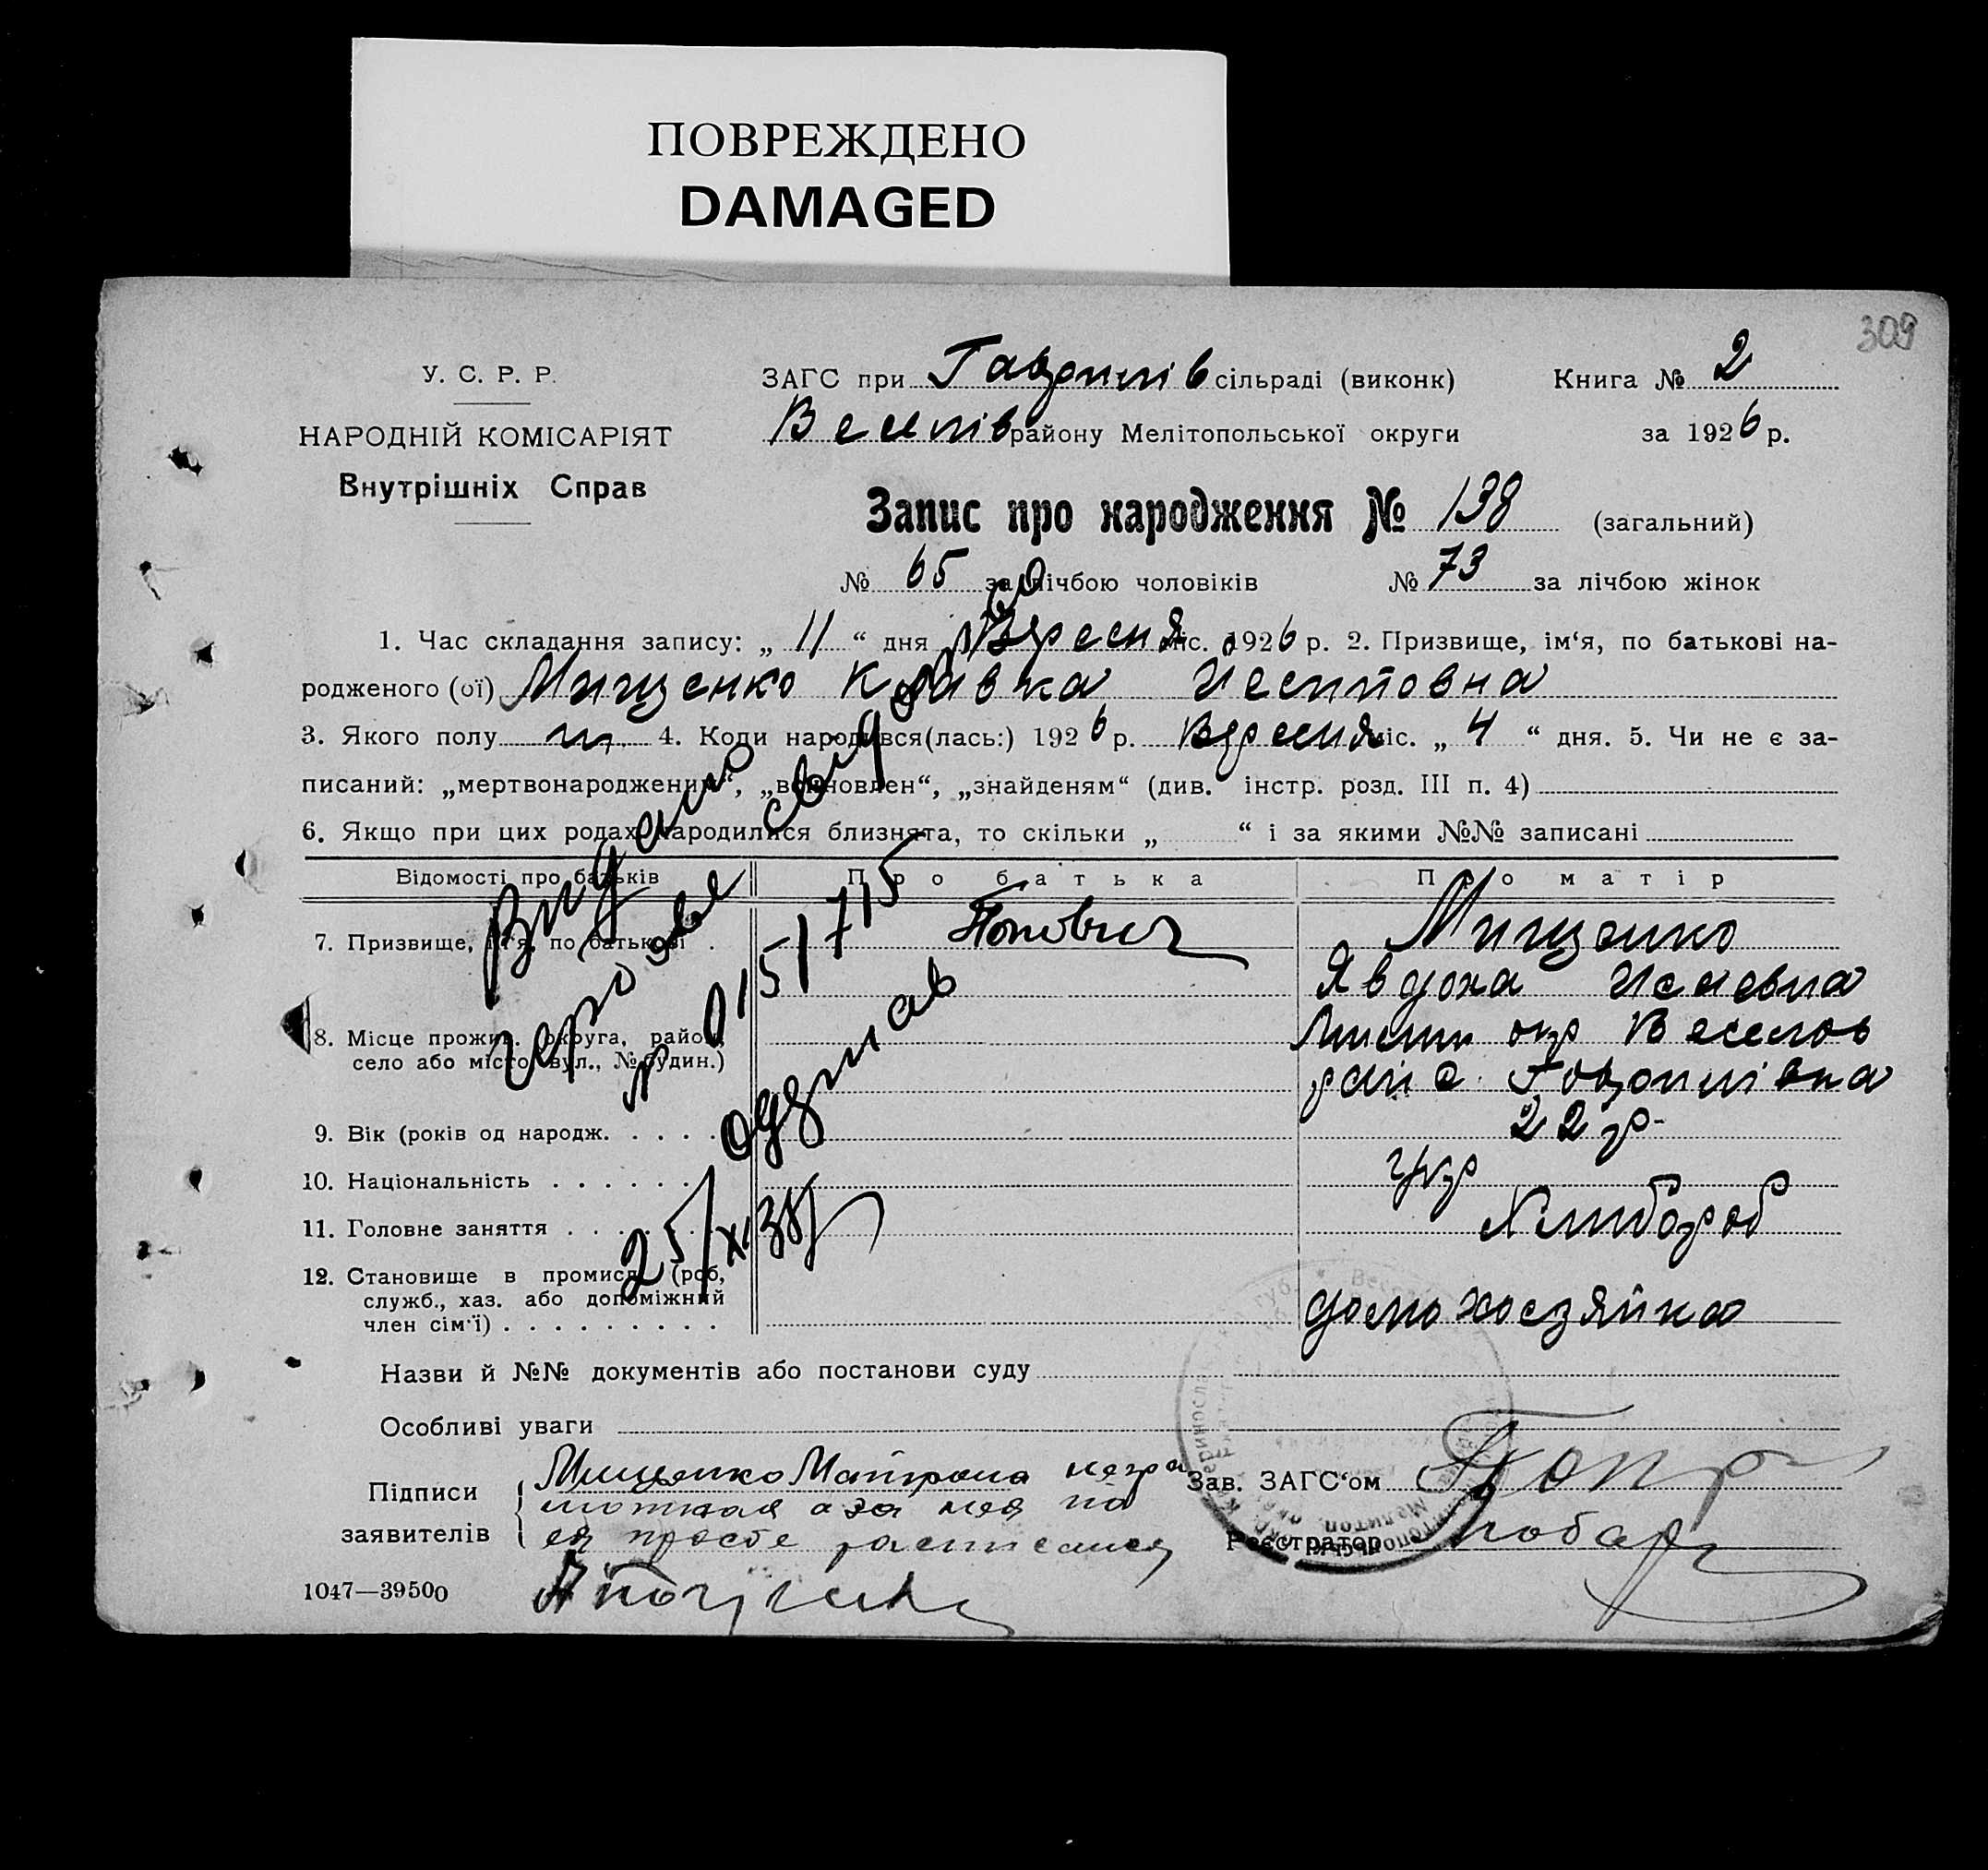 ПОВРЕЖДЕНО
DAMAGED
309
У. С. Р. Р.
НАРОДНІЙ КОМІСАРІЯТ
Внутрішніх Справ
ЗАГС при Гаврилів сільраді (виконк) Книга № 2
Веселів району Мелітопольської округи за 1926 р.
Запис про народження № 138 (загальний)
№ 65 за лічбою чоловіків № 73 за лічбою жінок
1. Час складання запису: „ 11 “ дня Вересня міс. 1926 р. 2. Призвище, ім‘я, по батькові на-
родженого (ої) Мищенко Клавка
3. Якого полу 4. Коли народився(лась:) 1926 р. Вересня міс. „ 4 “ дня. 5. Чи не є за-
писаний: „мертвонароджений“, „ “, „знайденям“ (див. інстр. розд. III п. 4)
6. Якщо при цих родах народилися близнята, то скільки „ “ і за якими №№ записані
Відомості про батьків Про батька Про матір
7. Призвище, ім‘я, по батькові . Попович Мищенко
Явдоха Исаевна
8. Місце прожив. округа, район, окр Веселов
село або місто, вул., № будин.) рай с. Гаврилівка
9. Вік (років од народж. . . . . 22 р.
10. Національність . . . . . . укр
11. Головне заняття . . . . . . Хлибороб
12. Становище в промисл. (роб,
служб., хаз. або допоміжний
член сім‘ї) . . . . . . . . . домохозяйка
Видано
свид
№ 0151715
одержав
25/XI 38
Назви й №№ документів або постанови суду
Особливі уваги
Підписи
заявителів
Мищенко Матрона негра
мотная а за нея по
ея просбе расписался
Зав. ЗАГС‘ом
Реєстратор
1047—39500